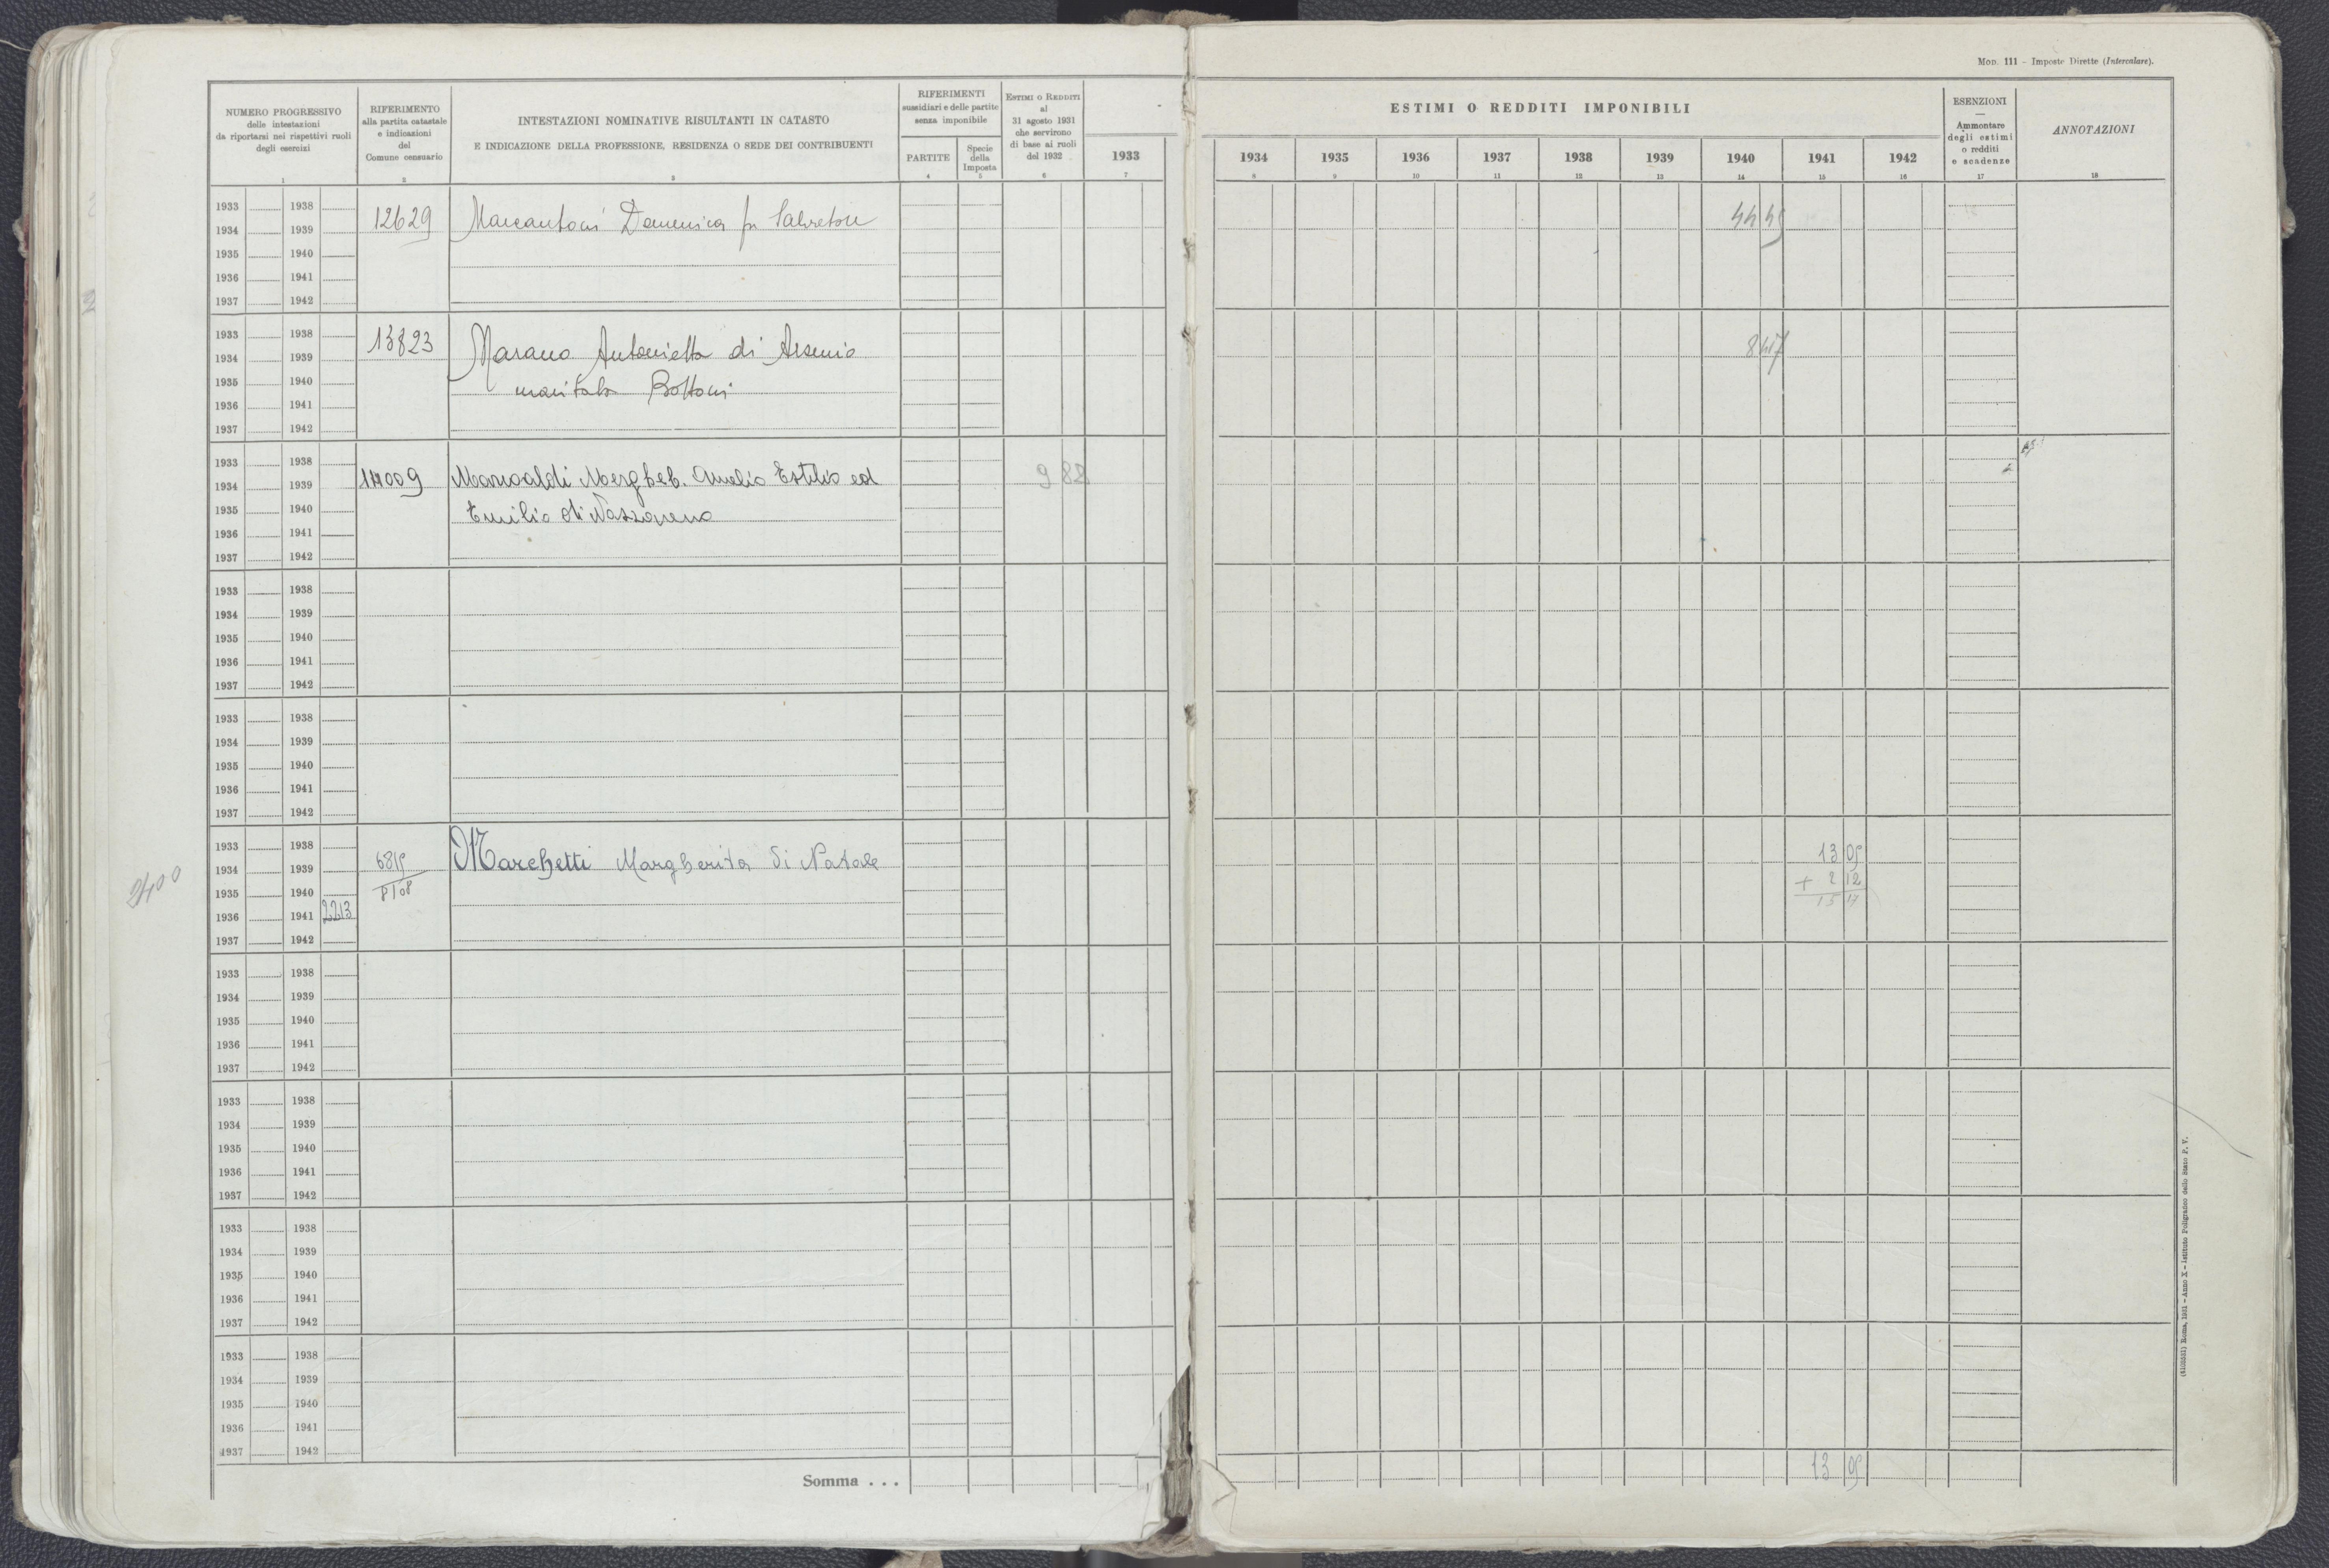 Mod. 111 - Imposte Dirette (Intercalare).
NUMERO PROGRESSIVO
delle intestazioni
da riportarsi nei rispettivi ruoli
degli esercizi
1
RIFERIMENTO
alla partita catastale
e indicazioni
del
Comune censuario
2
INTESTAZIONI NOMINATIVE RISULTANTI IN CATASTO
E INDICAZIONE DELLA PROFESSIONE, RESIDENZA O SEDE DEI CONTRIBUENTI
3
RIFERIMENTI
sussidiari e delle partite
senza imponibile
PARTITE
4
Specie
della
Imposta
5
ESTIMI O REDDITI
al
31 agosto 1931
che servirono
di base ai ruoli
del 1932
6
1933
7
ESTIMI O REDDITI IMPONIBILI
1934 1935 1936 1937 1938 1939 1940 1941 1942
8 9 10 11 12 13 14 15 16
ESENZIONI
—
Ammontare
degli estimi
o redditi
e scadenze
17
ANNOTAZIONI
18
1933 1938
1934 1939 12629 Marcantoni Domenica fu Salvatore 44 45
1935 1940
1936 1941
1937 1942
1933 1938 13823
1934 1939 Marano Antonietta di Arsenio 8 47
1935 1940 maritata Bottoni
1936 1941
1937 1942
1933 1938
1934 1939 14009 Manoaldi Amelio Estilio ed 9 82
1935 1940 Emilio di Nazzareno
1936 1941
1937 1942
1933 1938
1934 1939
1935 1940
1936 1941
1937 1942
1933 1938
1934 1939
1935 1940
1936 1941
1937 1942
1933 1938
1934 1939 6815 Marchetti Margherita di Natale 13 05
1935 1940 8108 + 2 12
1936 1941 2213 15 17
1937 1942
2400
1933 1938
1934 1939
1935 1940
1936 1941
1937 1942
1933 1938
1934 1939
1935 1940
1936 1941
1937 1942
1933 1938
1934 1939
1935 1940
1936 1941
1937 1942
1933 1938
1934 1939
1935 1940
1936 1941
1937 1942
Somma . . . 13 05
Roma, 1931 - Anno X - Istituto Poligrafico dello Stato P. V.